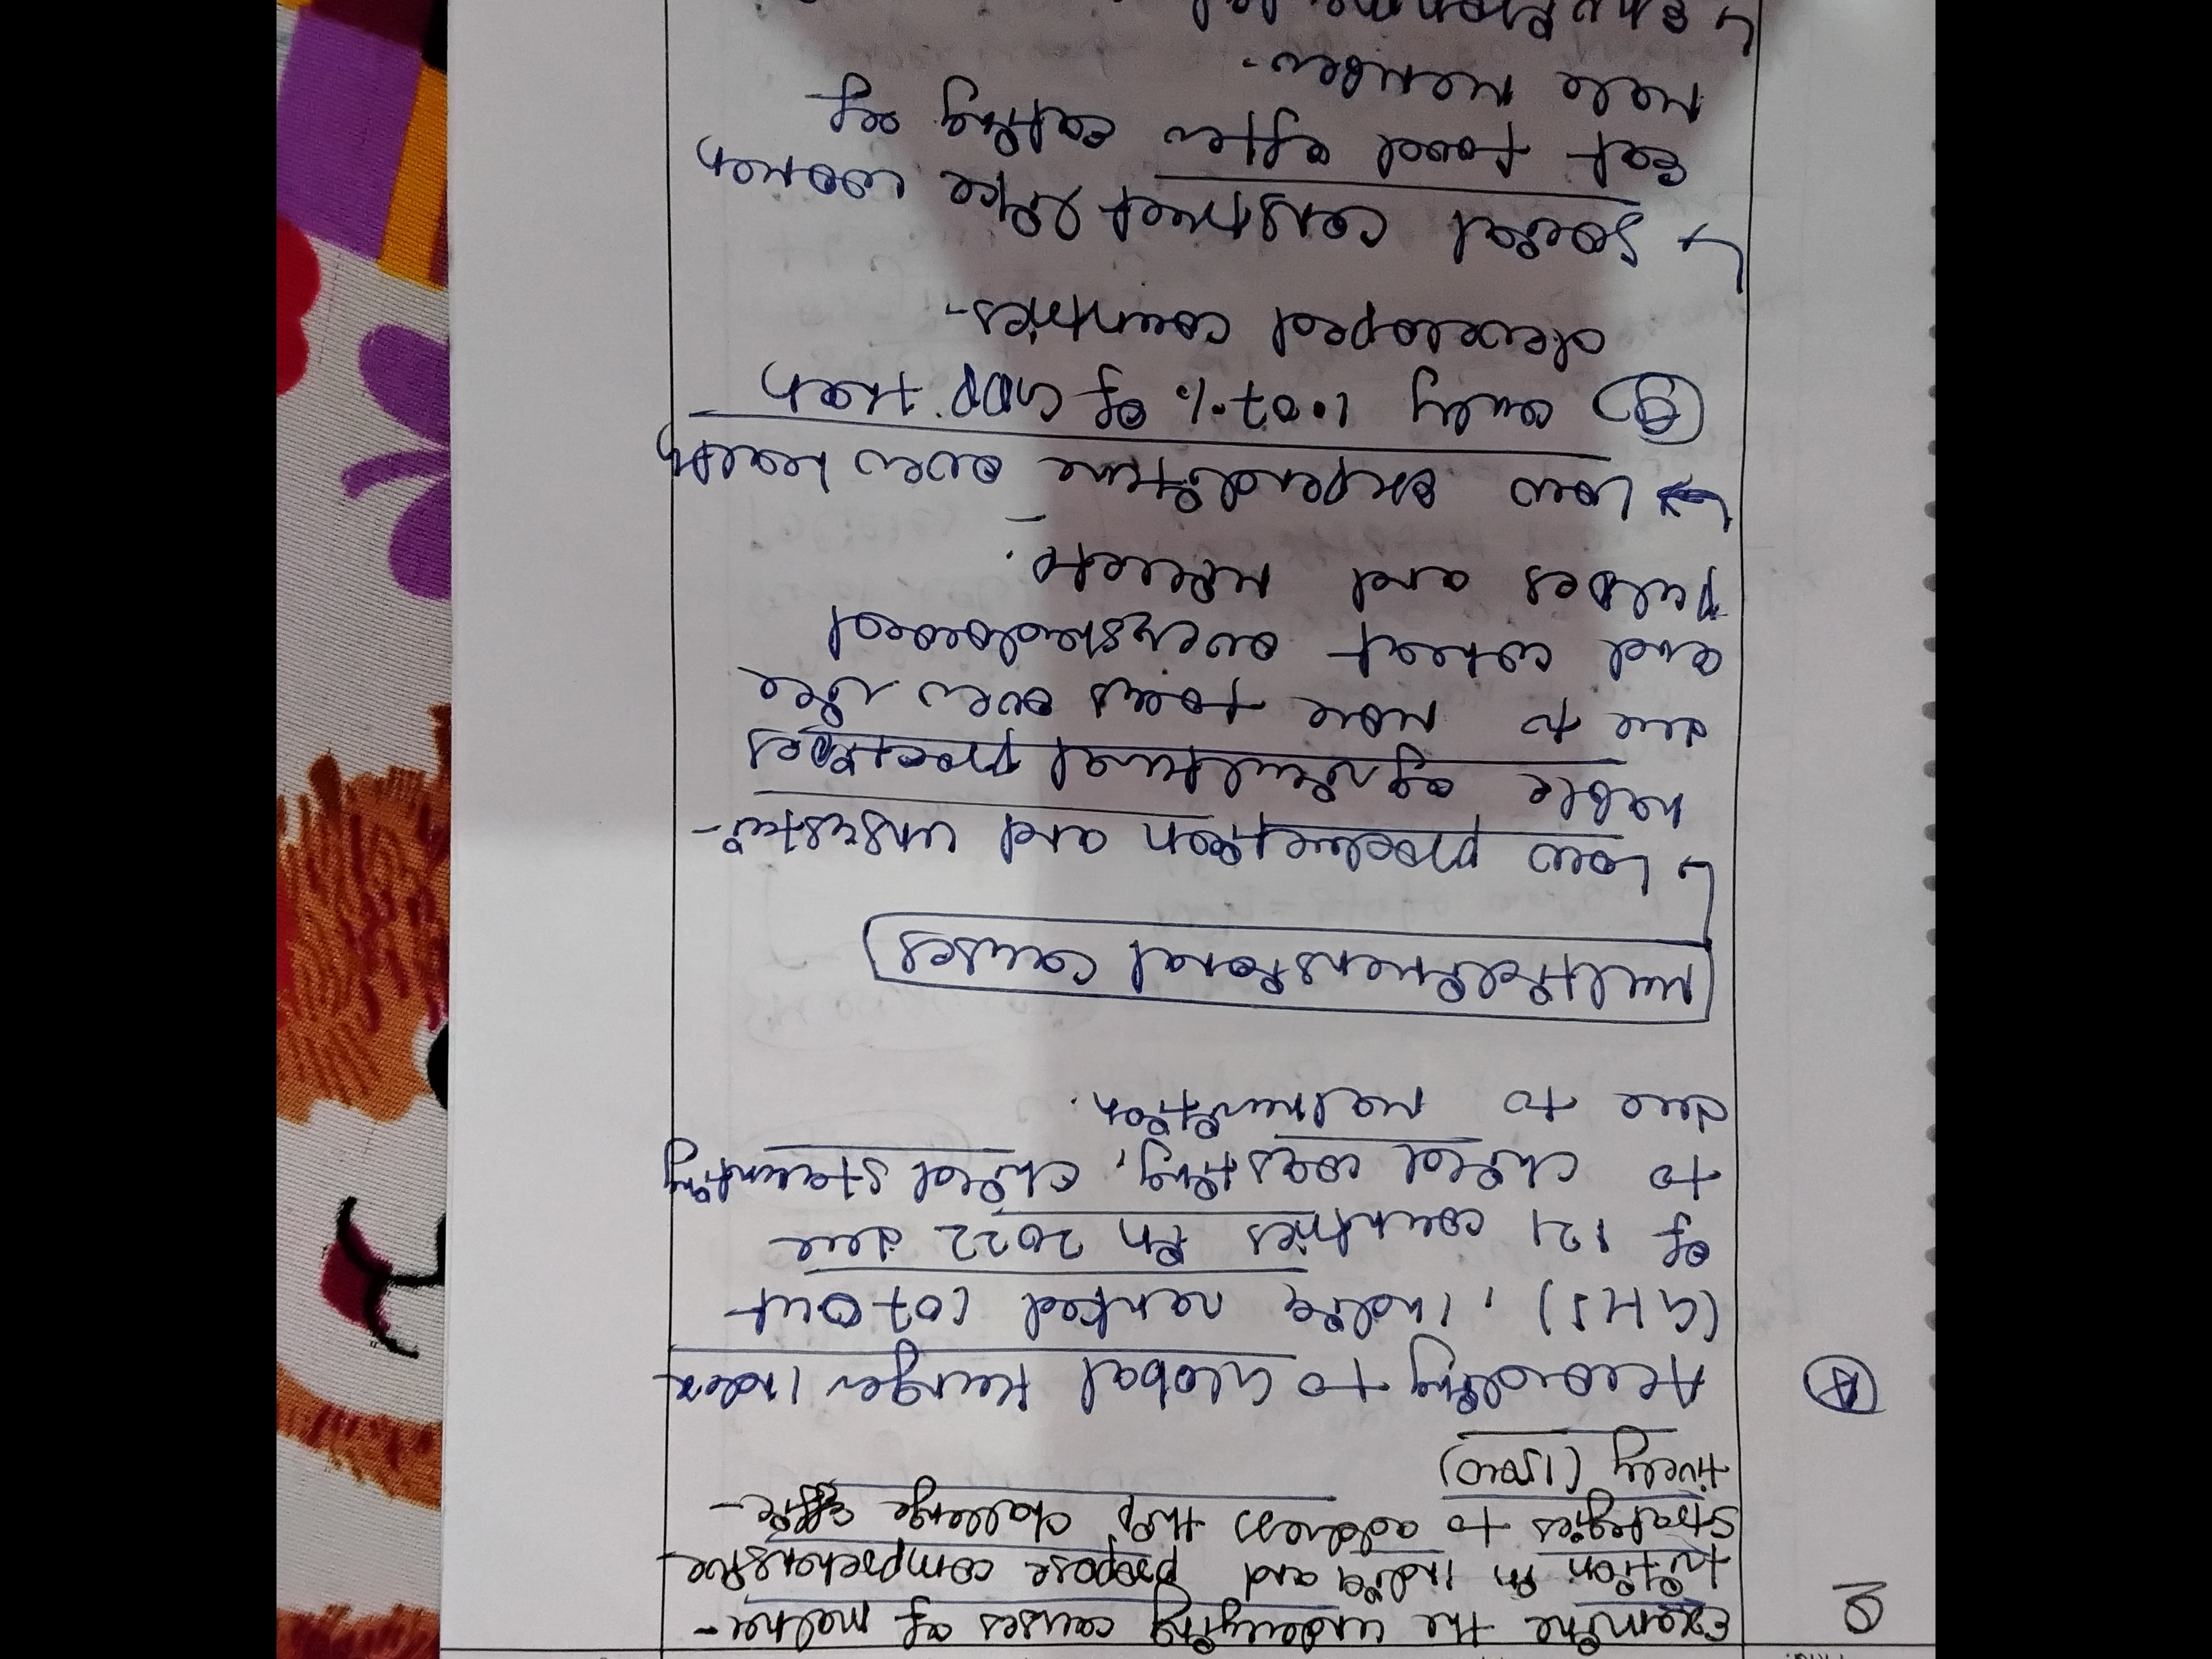 Q
Examine the underlying causes of malnu-
trition in India and propose comprehensive
strategies to address this challenge effec-
tively (150)
A
According to Global Hunger Index
(GHI), India ranked 107 out
of 121 countries in 2022 due
to child wasting, child stunting
due to malnutrition.
Multidimensional causes
↳ Low production and unsustai-
nable agricultural practices
due to more focus over rice
and wheat over
pulses and millets.
↳ Low expenditure over health
only 1.07% of GDP than
developed countries.
↳ Social construct like women
eat food after eating of
male member.